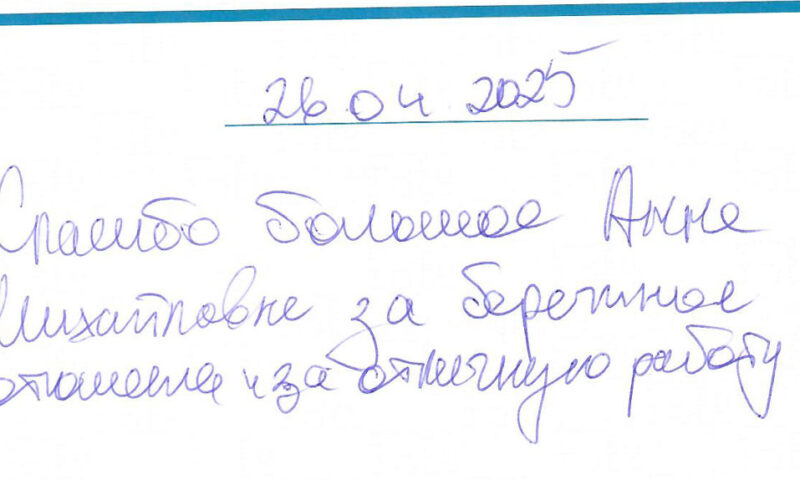 26.04.2025
Спасибо большое Анне
Михайловне за бережное
отношение и за отличную работу